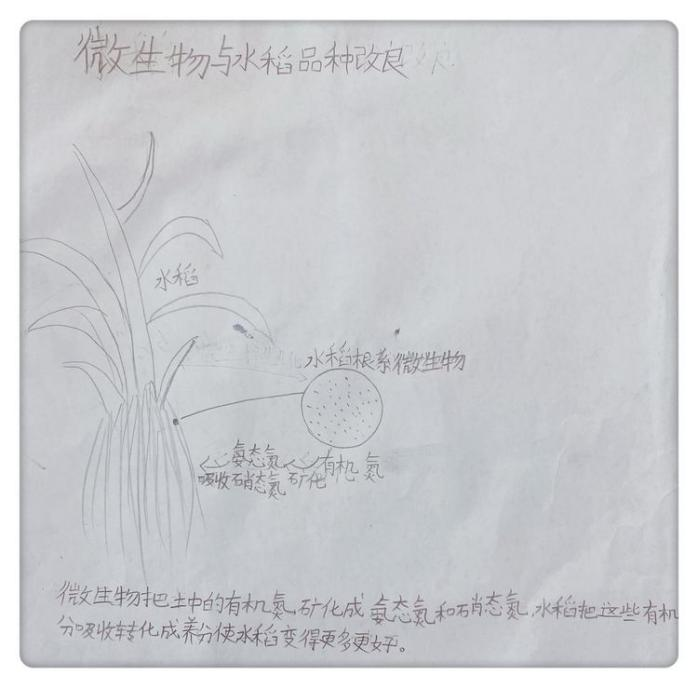 微生物与水稻品种改良
水稻
水稻根系微生物
氨态氮
有机氮
吸收硝态氮 矿化
微生物把土中的有机氮矿化成氨态氮和硝态氮,水稻把这些有机
分吸收转化成养分使水稻变得更多更好。